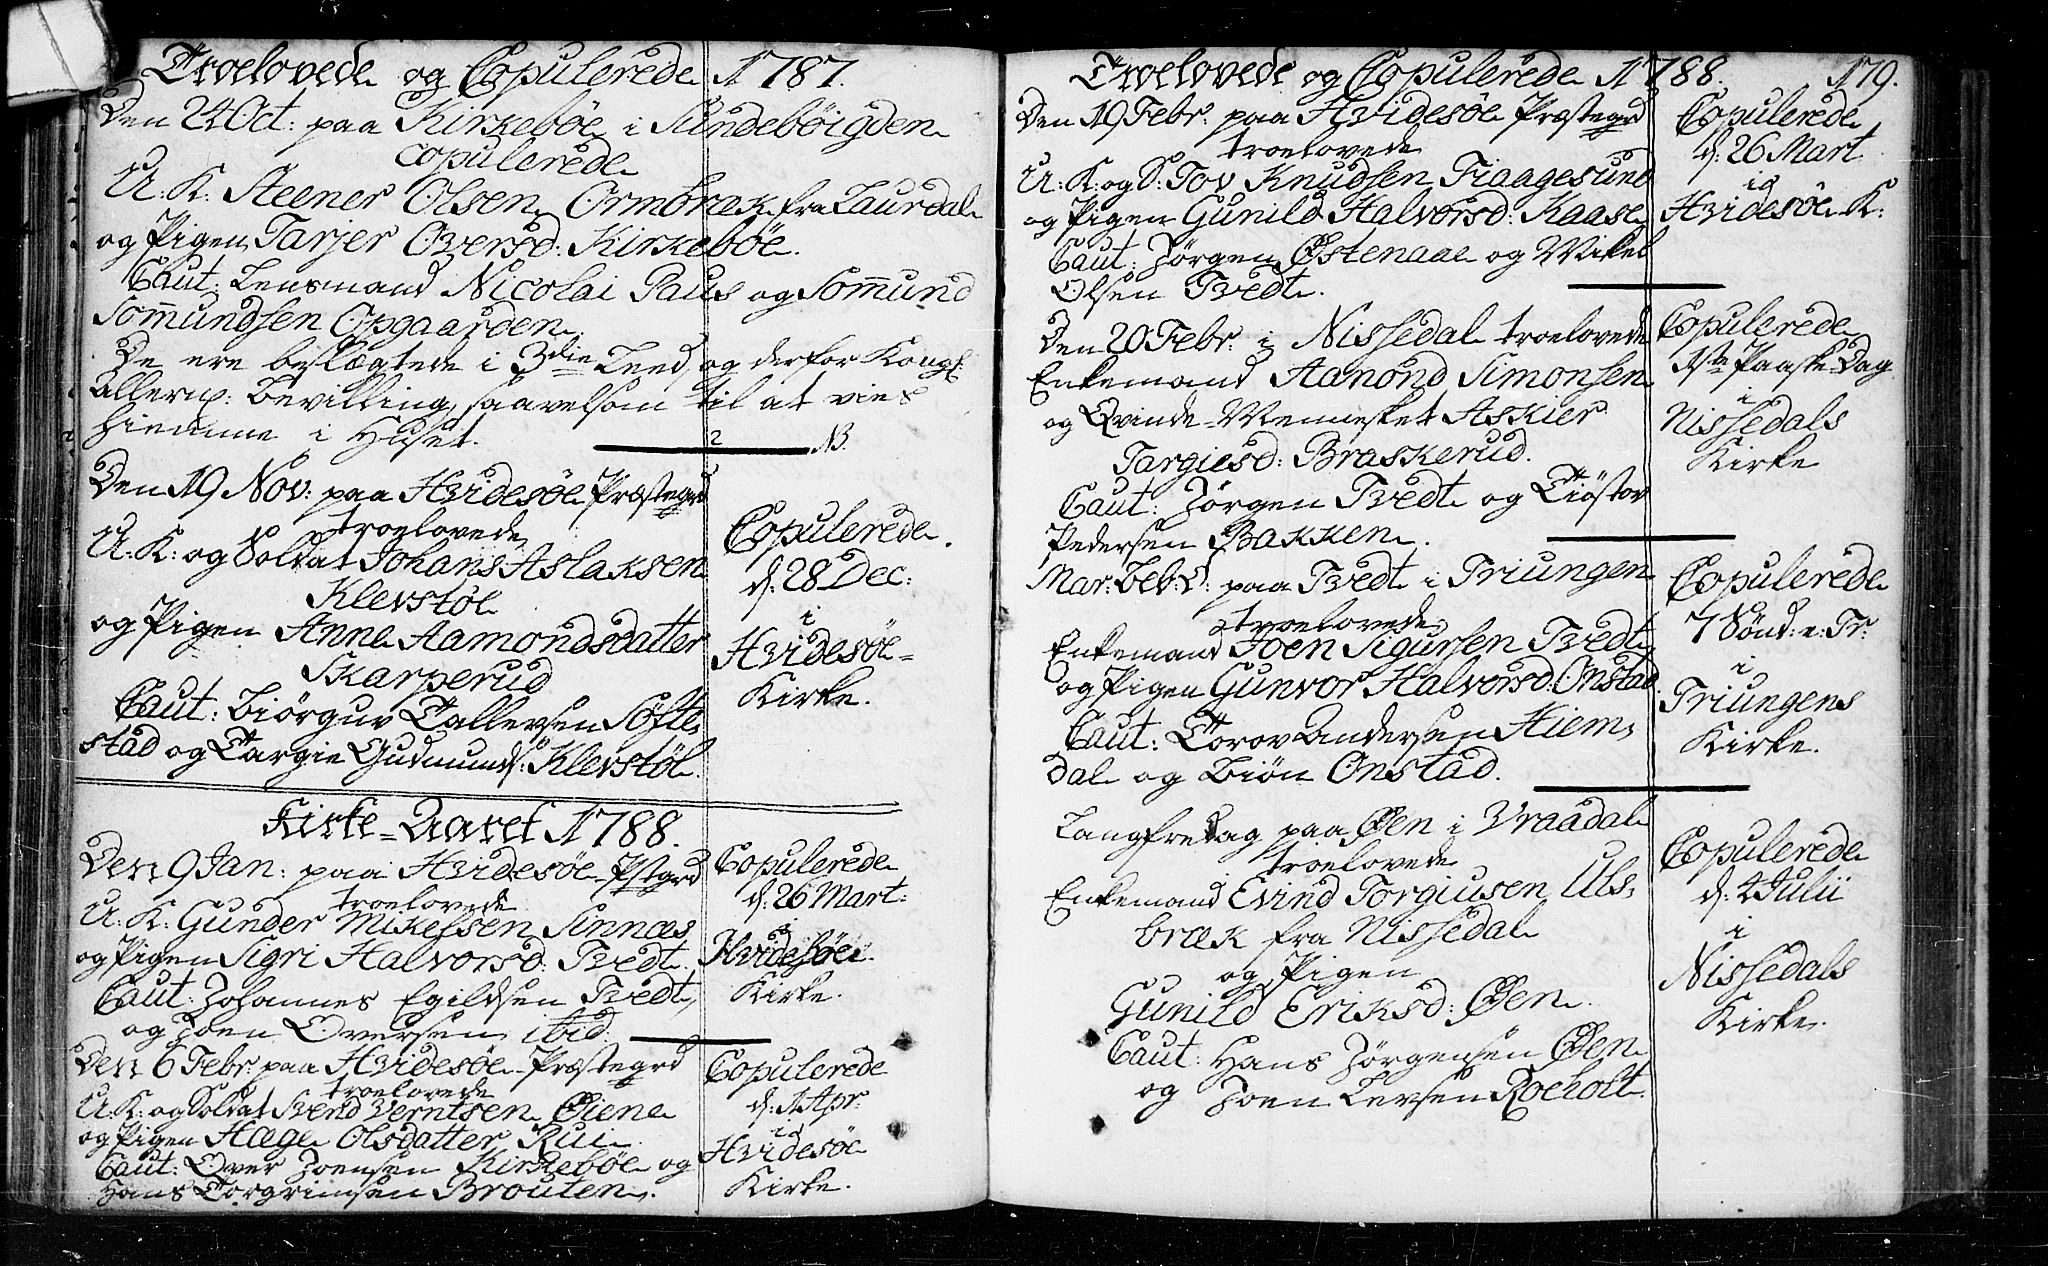 Troelovede og Copulerede 1787.
Den 24 Oct: paa Kirkebøe i Sundebøigden
copulerede
U: K: Steener Olsen Ormbræk fra Laurdal
og Pigen Tarjer Oversd: Kirkebøe.
Caut: Lensmand Nicolai Paus og Somund
Somundsen Opgaarden.
De ere beslægtede i 3die Leed, og derfor Kongl:
Allern: Bevilling, saavelsom til at vies
hiemme i Huset.
NB.
Den 19 Nov: paa Hvidesøe Præstegrd
troelovede
U: K: og Soldat Johans Aslaksen
Klevstøl
og Pigen Anne Aamondsdatter
Skarperud
Caut: Biørguv Tallevsen Søfte-
stad og Targie Gudmunds: Klevstøl.
Copulerede
d: 28 Dec:
i
Hvidesøe
Kirke.
Kirke-Aaret 1788.
Den 9 Jan: paa Hvidesøe Pstgrd
troelovede
U: K: Gunder Mikelsen Sinnæs
og Pigen Sigri Halvorsd: Tvedt.
Caut: Johannes Egildsen Tvedt,
og Joen Oversen ibid.
Copulerede
d: 26 Mart:
i
Hvidesøe
Kirke.
Den 6 Febr: paa Hvidesøe Præstegrd
troelovede
U: K: og Soldat Svend Verntsen Øiene
og Pigen Hæge Olsdatter Rui.
Caut: Over Joensen Kirkebøe og
Hans Torgrimsen Brouten.
Copulerede
d: 1 Apr:
i
Hvidesøe
Kirke.
Troelovede og Copulerede 1788. 179.
Den 19 Febr: paa Hvidesøe Præstegrd
troelovede
U: K: og S: Tov Knudsen Fraagesund
og Pigen Gunild Halvorsd: Kaase
Caut: Jørgen Østenaae og Mikel
Olsen Tvedt.
Copulerede
d: 26 Mart
i
Hvidesøe K:
Den 20 Febr: i Nissedal troelovede
Enkemand Aamond Simonsen
og Qvinde-Mennesket Askier
Targiesd: Braskerud.
Caut: Jørgen Tvedt og Tiøstov
Pedersen Bakken.
Copulerede
1ste Paaske Dag
i
Nissedals
Kirke
Mar: Beb: D: paa Tvedt i Triungen
troelovede
Enkemand Joen Sigursen Tvedt
og Pigen Gunvor Halvorsd: Onstad.
Caut: Torov Andersen Hiem-
dal og Biøn Onstad.
Copulerede
7 Sønd: e: Tr:
i
Triungens
Kirke.
Langfredag paa Øen i Vraadal
troelovede
Enkemand Evind Torgiusen Uls-
bræk fra Nissedal
og Pigen
Gunild Eriksd: Øen.
Caut: Hans Jørgensøn Øen
og Joen Levsen Roeholt.
Copulerede
d: 4 Julii
i
Nissedals
Kirke.